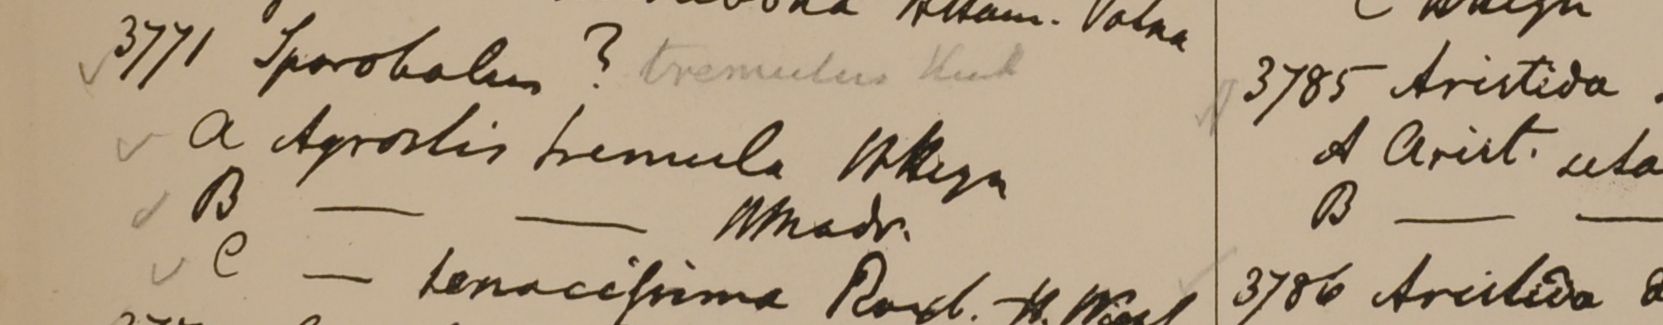 Ham. Patna
3771 Sporobolus ? tremulus Kunth
a Agrostis tremula HHeyn
B — — HMadr.
C — tenacissima Roxb. H.
3785 Aristida
A Arist. seta
B — —
3786 Aristida